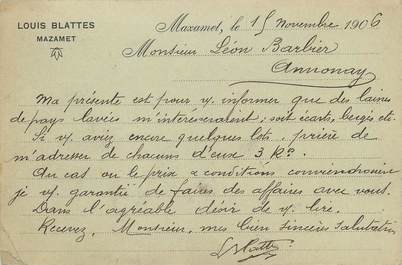 LOUIS BLATTES
MAZAMET
Mazamet, le 15 Novembre 1906
Monsieur Léon Barbier
Annonay
Ma présente est pour v/. informer que des laines
de pays lavées m'intéresseraient; soit écarts, etc.
Si v/. aviez encore quelques lots, prière de
m'adresser de chacuns d'eux 3 Kos.
Au cas ou le prix & conditions conviendraient
je v/. garantis de faires des affaires avec vous.
Dans l'agréable désir de v/. lire,
Recevez, Monsieur, mes bien sincères salutations
LBlattes